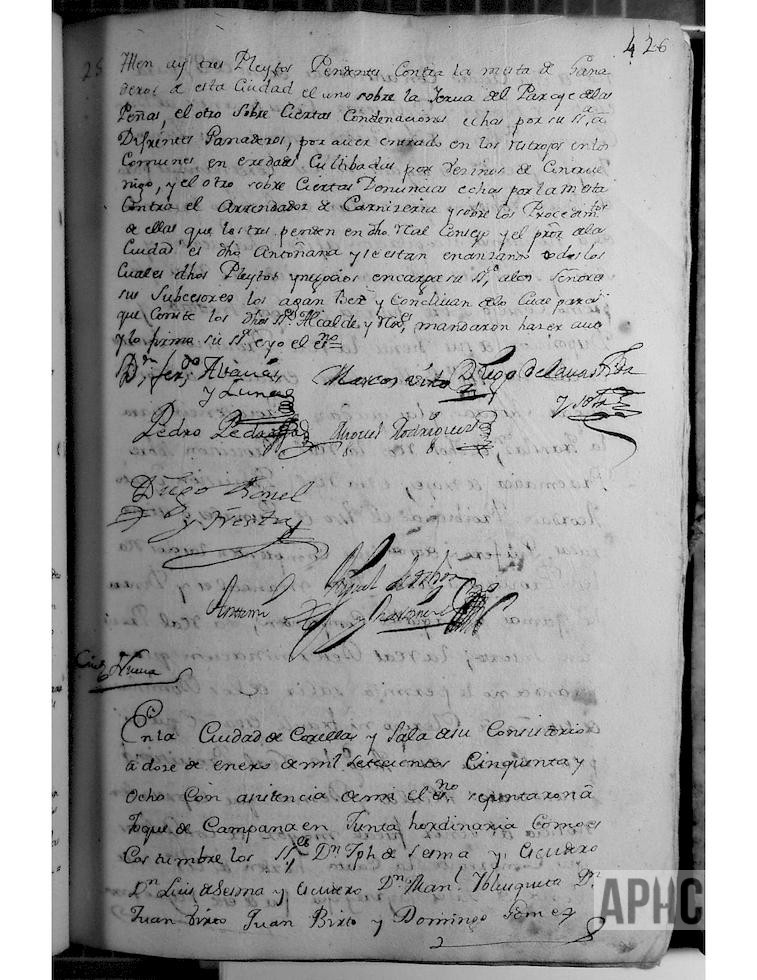 426
25
Itten ay tres Pleytos Pendentes Contra la mesta de Gana
deros de esta Ciudad el uno sobre la Yerua del Paraje delas
Peñas, el otro sobre Ciertas Condenaciones echas por su Sª, a
Difrentes Ganaderos, por auer entrado en los rastrojos en los
Comunes en eredades Cultibadas por Vezinos de Cintrue
nigo, y el otro sobre Ciertas Denuncias echas por la mesta
Contra el Arrendador de Carniceria y sobre los Procedimtos
de ellas que los tres penden en dho Real Consejo y el prôr dela
Ciudad es dho Antoñana y se estan enanzando todos los
Cuales dhos Pleytos y negocios encarga su Sª, alos Señores
sus Subcesores los agan Ber y Concluian delo Cual para
que Conste los dhos SSres Alcalde y Rexs, mandaron hazer auto
y lo firma su Sª, e yo el esno
Dn ferdo Abaría
y Luna
Marcos Virto
Diego de
Pedro
Miguel Rodriguez
Diego Bonel
y
Antemi
Miguel de
Ciud Nueua
Enla Ciudad de Corellas y Sala desu Consistorio
a doze de enero de mil Setecientos Cinquenta y
Ocho Con asistencia demi el esno se juntaron a
Toque de Campana en Junta hordinaria Como es
Costumbre los SSres Dn Jph de Sesma y Escudero
Dn Luis de Sesma y Escudero Dn Manl Dn
Juan Virto Juan Birto y Domingo Gomez
APHC